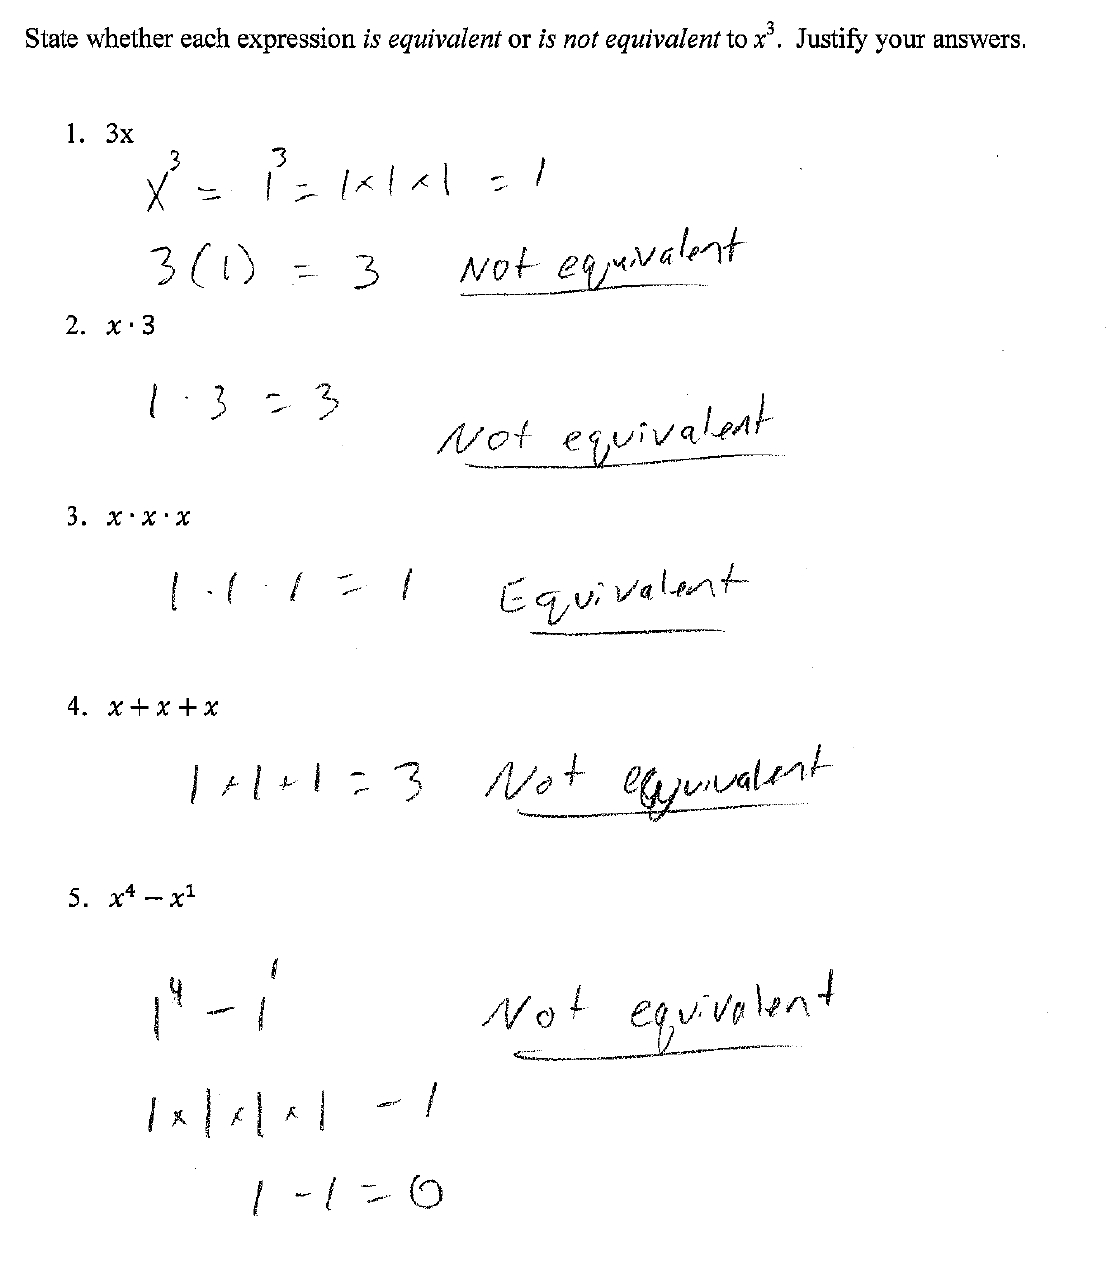 State whether each expression is equivalent or is not equivalent to x³. Justify your answers.
1. 3x
x³ = 1³ = 1×1×1 = 1
3(1) = 3 Not equivalent
2. x · 3
1 · 3 = 3
Not equivalent
3. x · x · x
1 · 1 · 1 = 1 Equivalent
4. x + x + x
1 + 1 + 1 = 3 Not equivalent
5. x⁴ − x¹
1⁴ − 1¹ Not equivalent
1×1×1×1 − 1
1 − 1 = 0